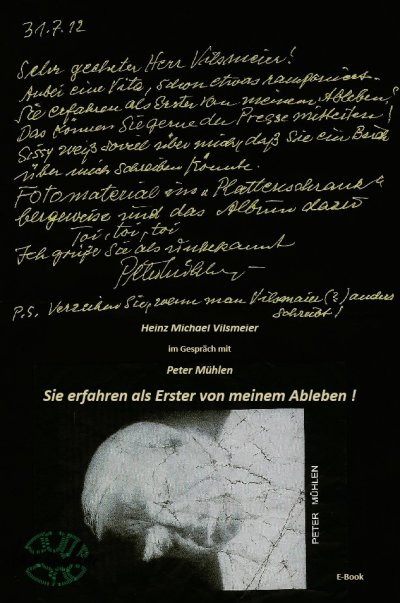 31.7.12
Sehr geehrter Herr Vilsmeier!
Anbei eine Vita, schon etwas ramponiert.
Sie erfahren als Erster von meinem Ableben!
Das können Sie gerne der Presse mitteilen!
Sissy weiß soviel über mich, daß Sie ein Buch
über mich schreiben könnte.
Fotomaterial ins "Plattenschrank"
bergeweise und das Album dazu
Toi, toi, toi
Ich grüße Sie als unbekannt
P.S. Verzeihen Sie, wenn man Vilsmaier (?) anders
schreibt!
Heinz Michael Vilsmeier
im Gespräch mit
Peter Mühlen
Sie erfahren als Erster von meinem Ableben !
PETER MÜHLEN
E-Book